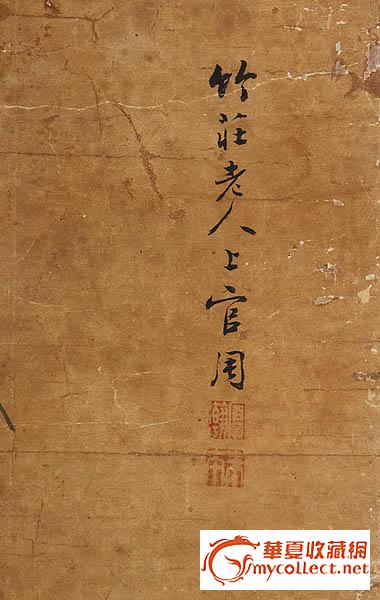 竹莊老人上官周
華夏收藏網
mycollect.net